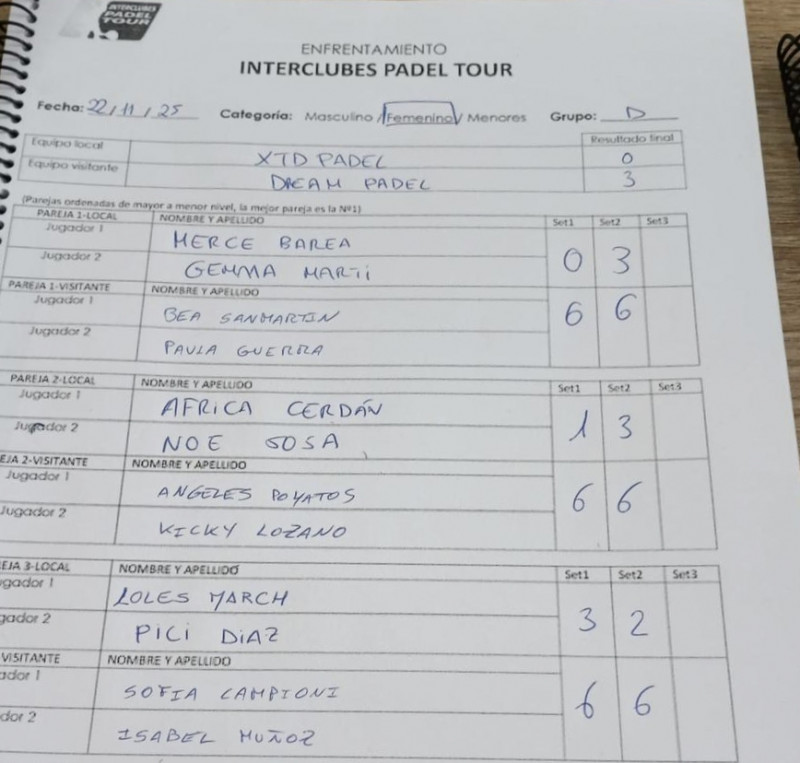 INTERCLUBES
PADEL
TOUR
ENFRENTAMIENTO
INTERCLUBES PADEL TOUR
Fecha: 22/11/25 Categoría: Masculino / Femenino / Menores Grupo: D
Resultado final
Equipo local XTD PADEL 0
Equipo visitante DREAM PADEL 3
(Parejas ordenadas de mayor a menor nivel, la mejor pareja es la Nº1)
PAREJA 1-LOCAL NOMBRE Y APELLIDO Set1 Set2 Set3
Jugador 1 MERCE BAREA
Jugador 2 GEMMA MARTi 0 3
PAREJA 1-VISITANTE NOMBRE Y APELLIDO
Jugador 1 BEA SANMARTIN 6 6
Jugador 2 PAULA GUERRA
PAREJA 2-LOCAL NOMBRE Y APELLIDO Set1 Set2 Set3
Jugador 1 AFRICA CERDÁN
Jugador 2 NOE SOSA 1 3
EJA 2-VISITANTE NOMBRE Y APELLIDO
Jugador 1 ANGELES POYATOS 6 6
Jugador 2 KICKY LOZANO
EJA 3-LOCAL NOMBRE Y APELLIDO Set1 Set2 Set3
ugador 1 LOLES MARCH
gador 2 PiCi DiAZ 3 2
VISITANTE NOMBRE Y APELLIDO
ador 1 SOFIA CAMPIONI 6 6
dor 2 ISABEL MUÑOZ